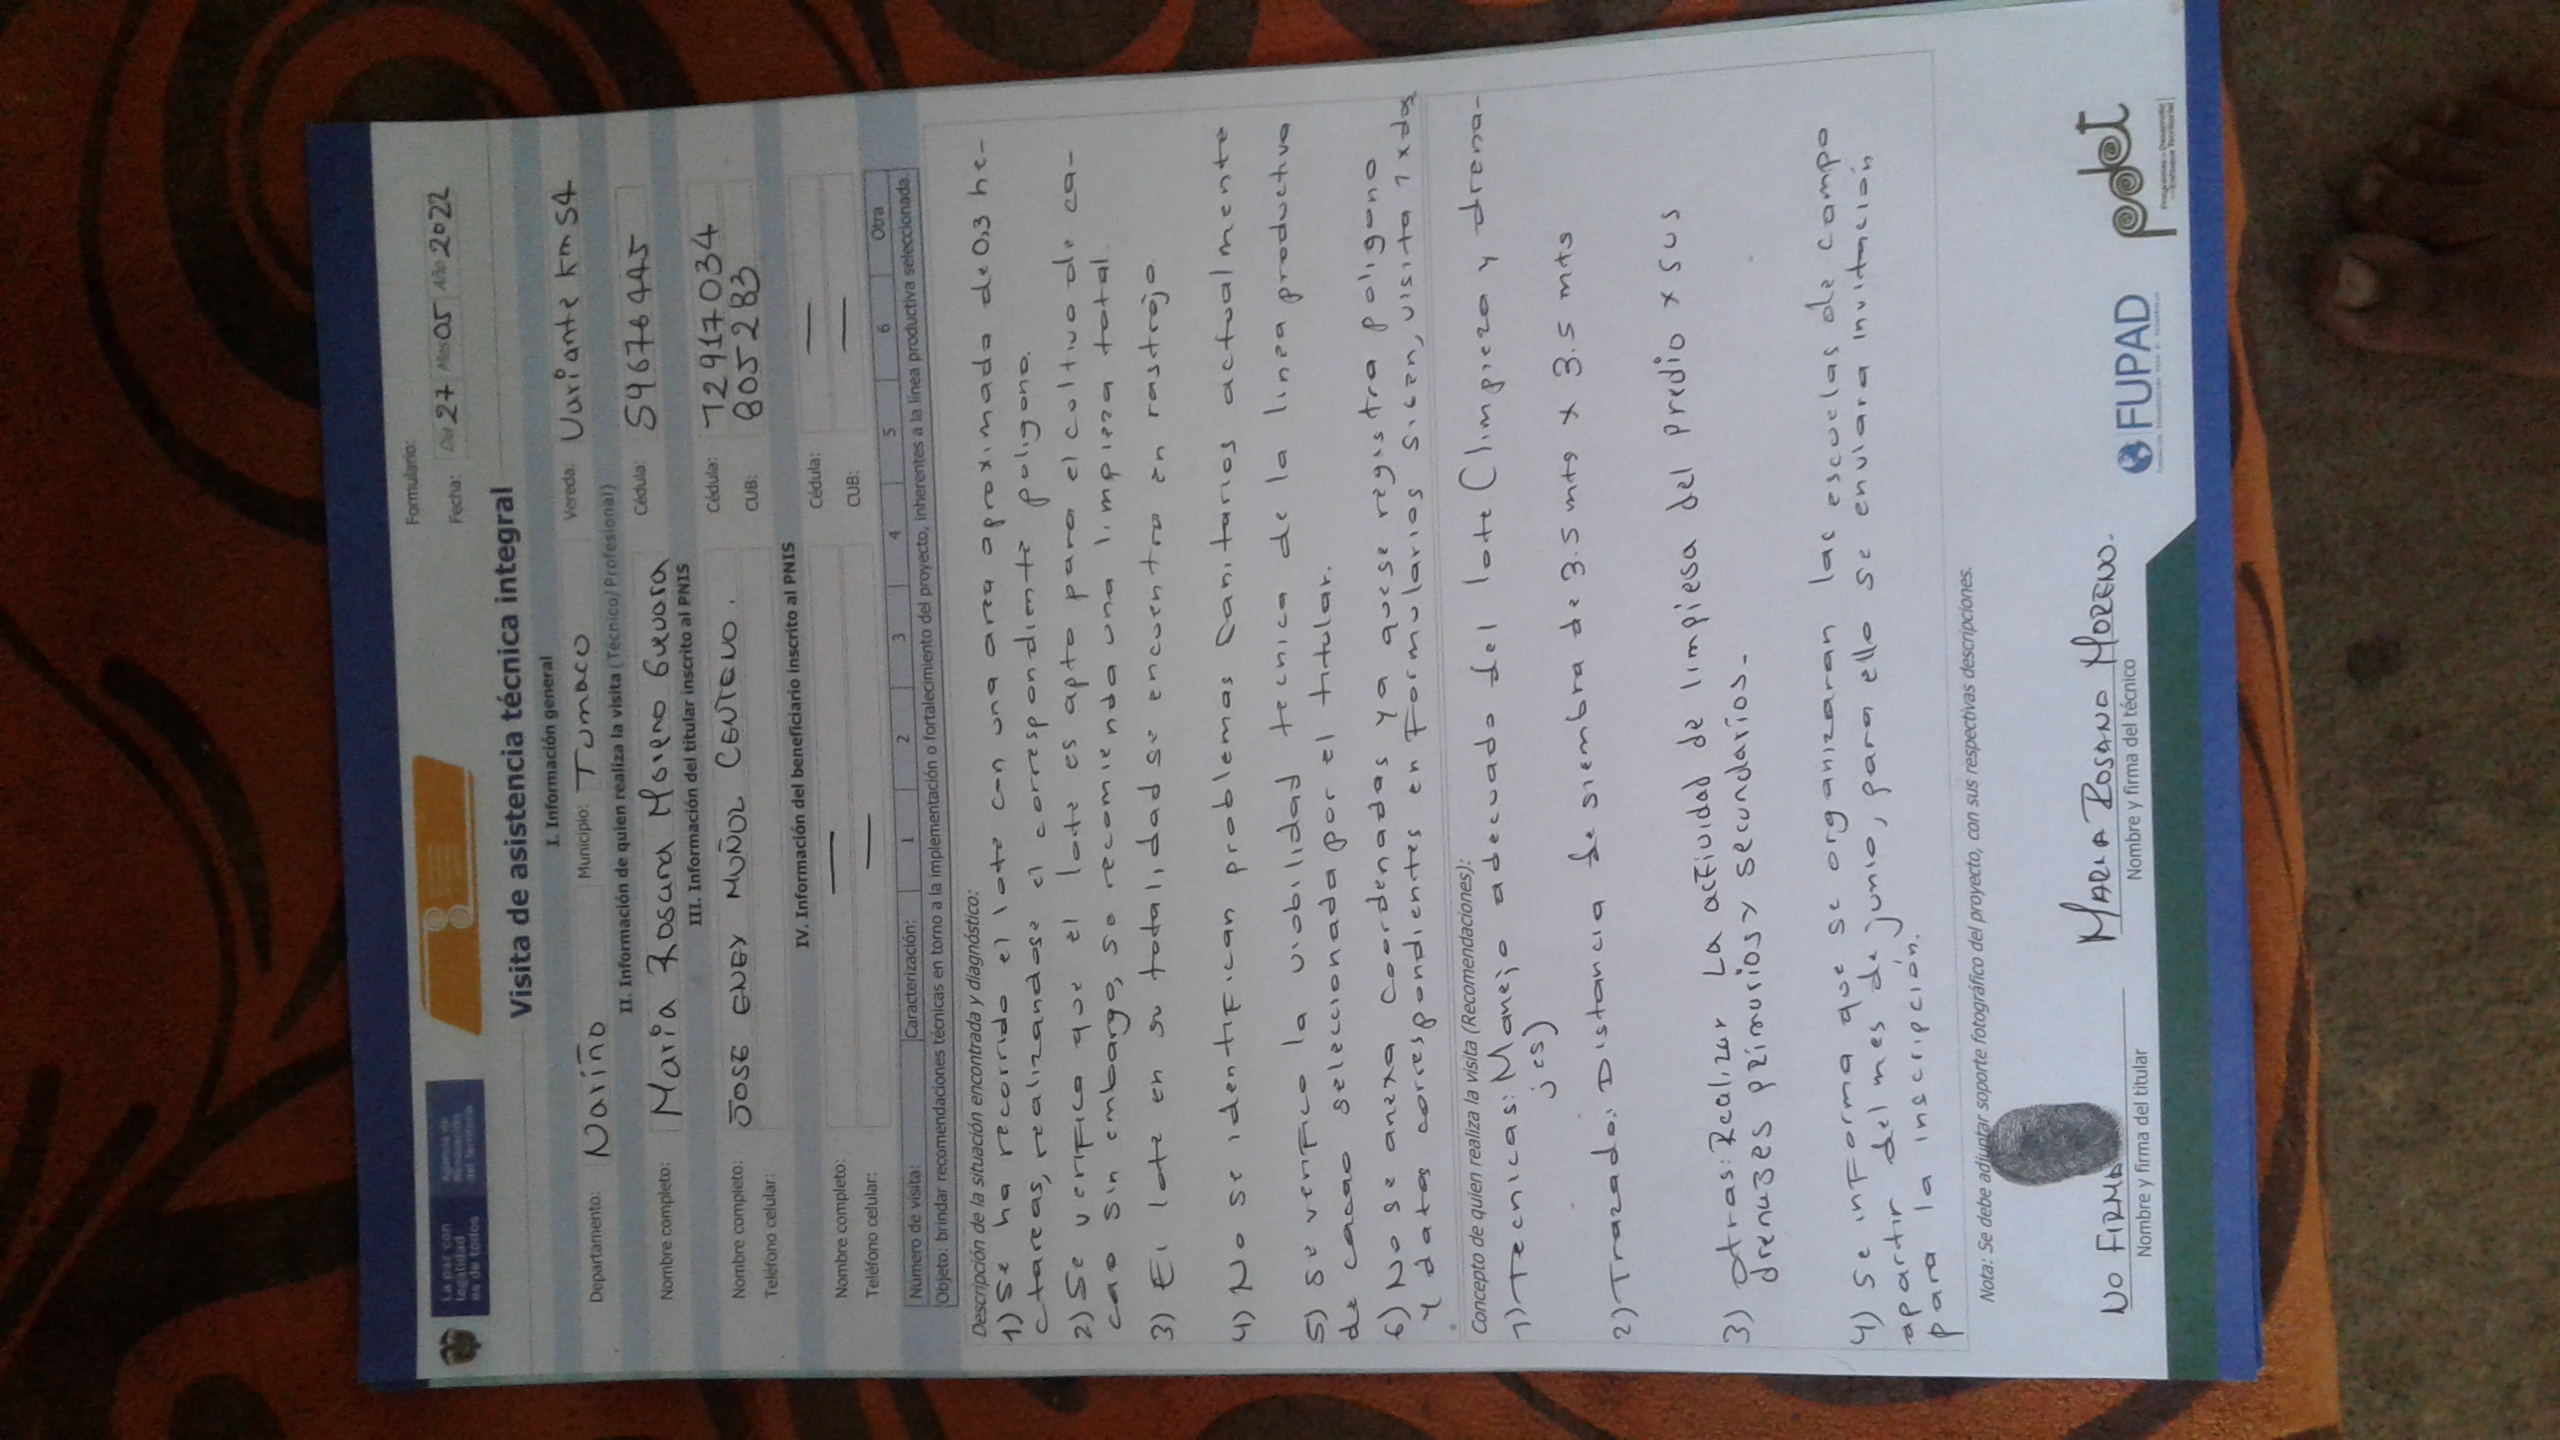 La paz con
legalidad
es de todos
Agencia de
Renovación
del Territorio
Formulario:
Fecha: Día 27 Mes 05 Año 2022
Visita de asistencia técnica integral
I. Información general
Departamento: Nariño Municipio: Tumaco Vereda: Variante km 54
II. Información de quien realiza la visita (Técnico/Profesional)
Nombre completo: Maria Rosana Moreno Guevara Cédula: 59676445
III. Información del titular inscrito al PNIS
Nombre completo: JOSE ENEY MUÑOZ CENTENO. Cédula: 12917034
Teléfono celular: CUB: 805283
IV. Información del beneficiario inscrito al PNIS
Nombre completo: — Cédula: —
Teléfono celular: — CUB: —
Número de visita: Caracterización: 1 2 3 4 5 6 Otra
Objeto: brindar recomendaciones técnicas en torno a la implementación o fortalecimiento del proyecto, inherentes a la línea productiva seleccionada.
Descripción de la situación encontrada y diagnóstico:
1) Se ha recorrido el lote con una area aproximada de 0,3 he-
ctareas, realizandose el correspondiente poligono.
2) Se verifica que el lote es apto para el cultivo de ca-
cao sin embargo, se recomienda una limpieza total
3) El lote en su totalidad se encuentra en rastrojo.
4) No se identifican problemas sanitarios actualmente
5) se verifico la viabilidad tecnica de la linea productiva
de cacao seleccionada por el titular.
6) No se anexa coordenadas ya que se registra poligono
y datos correspondientes en formularios sicen, visita 1 x dos
Concepto de quien realiza la visita (Recomendaciones):
1) tecnicas: Manejo adecuado del lote (limpieza y drena-
jes)
2) Trazado: Distancia de siembra de 3.5 mts x 3.5 mts
3) otras: Realizar La actividad de limpiesa del predio x sus
drenajes primarios y secundarios.
4) se informa que se organizaran las escuelas de campo
apartir del mes de junio, para ello se enviara invitación
para la inscripción.
Nota: Se debe adjuntar soporte fotográfico del proyecto, con sus respectivas descripciones.
NO FIRMA
Nombre y firma del titular
MARIA ROSANA MORENO.
Nombre y firma del técnico
FUPAD
pdet